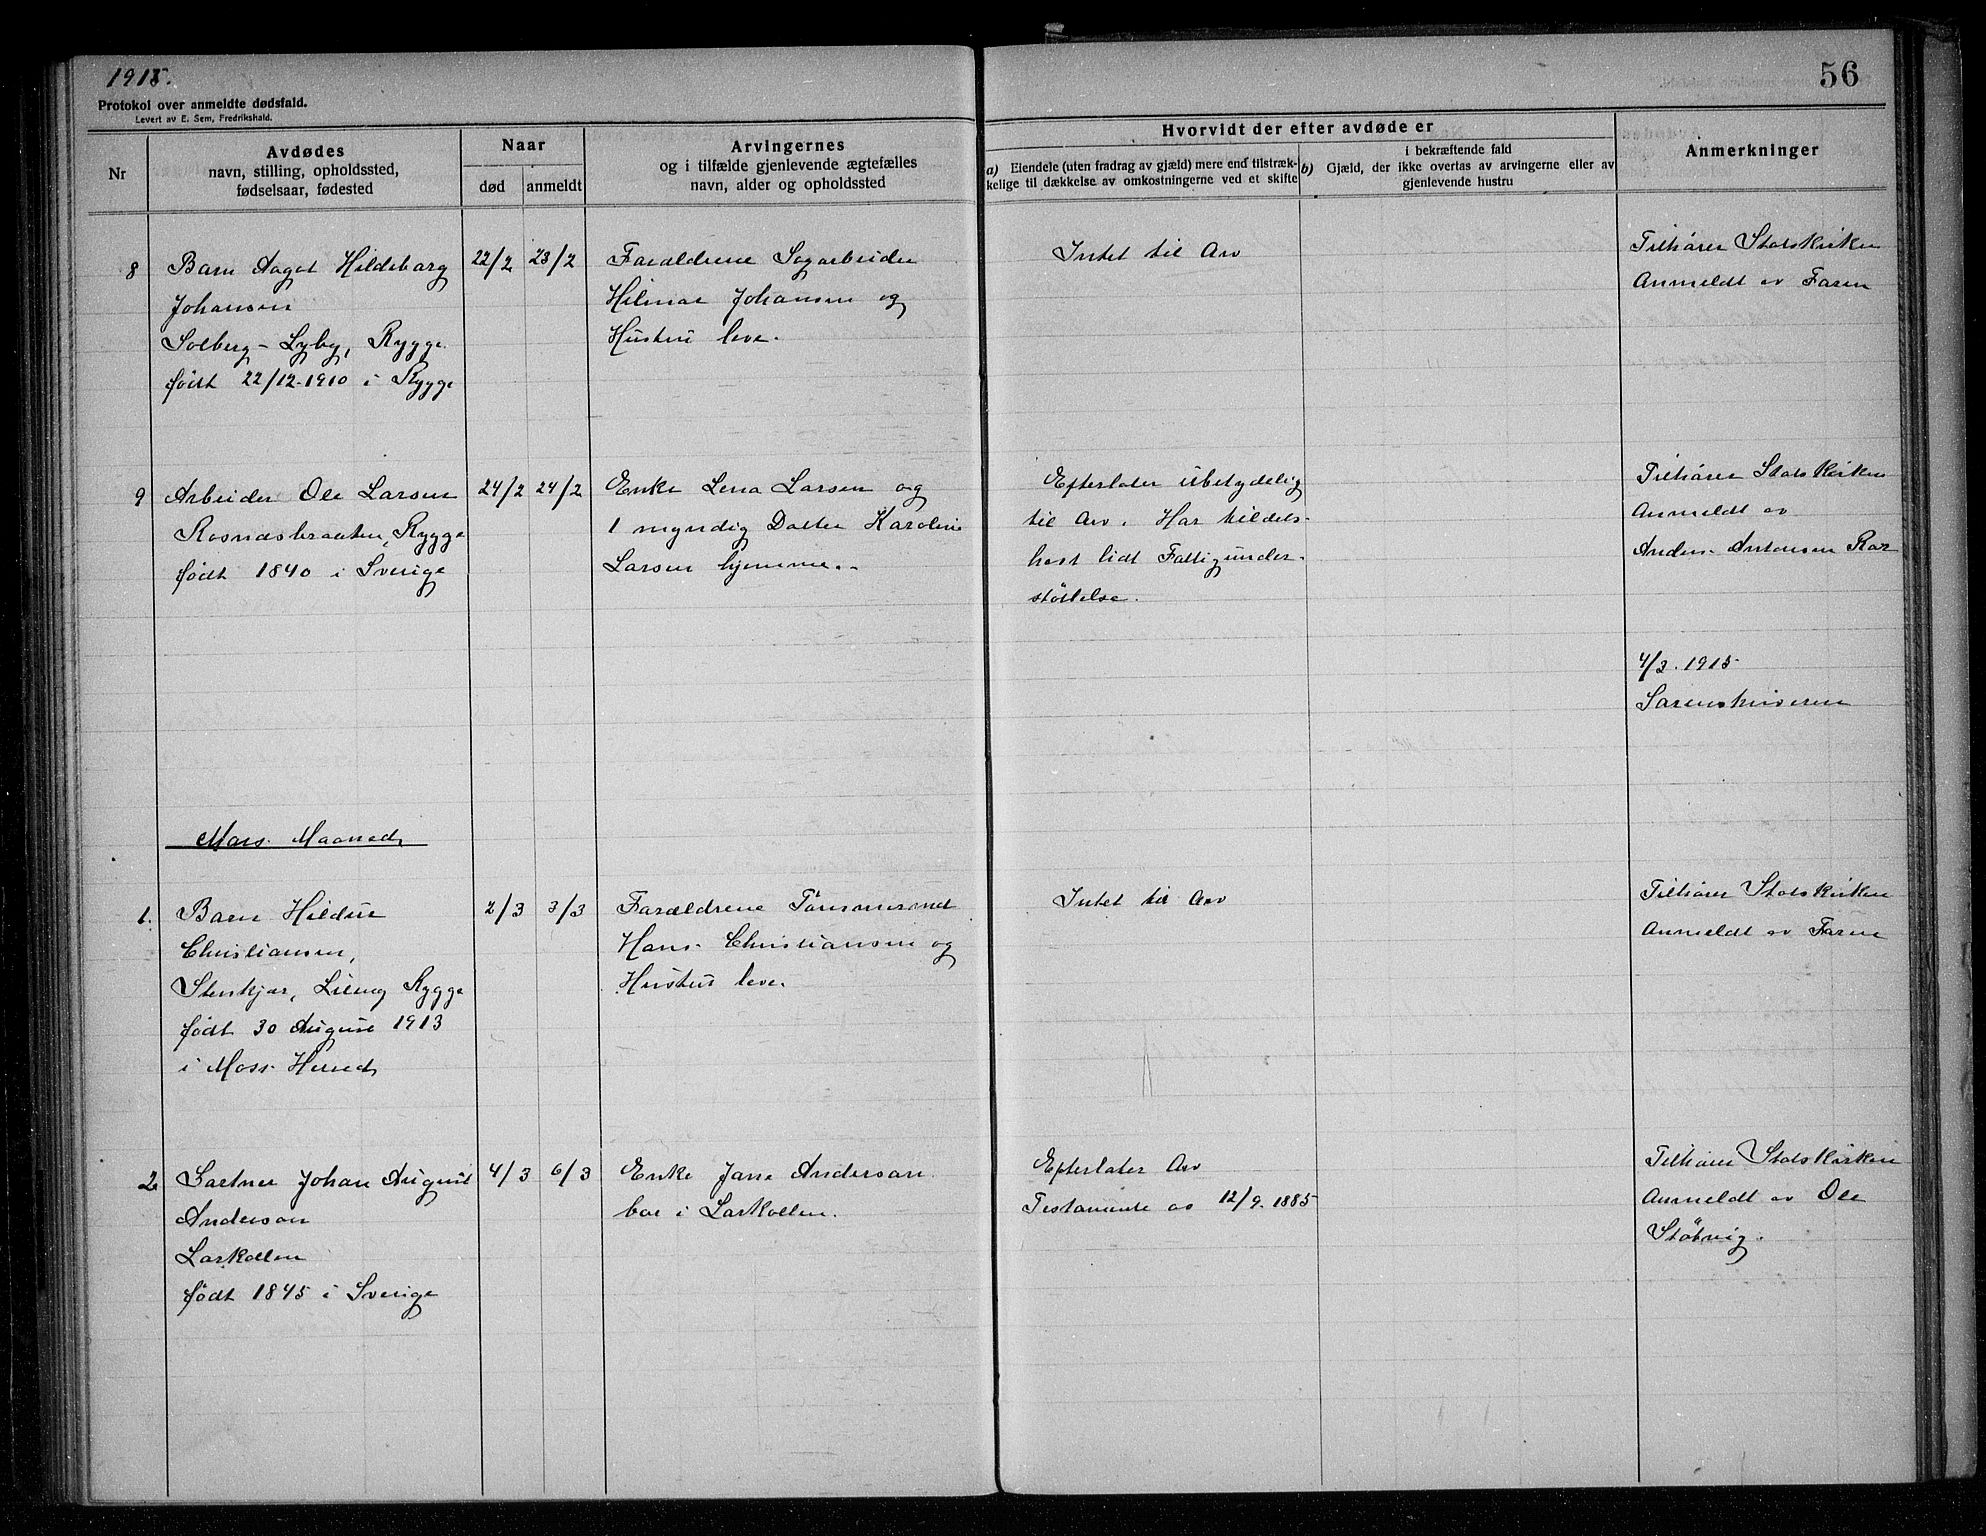 1915.
56
Protokol over anmeldte dødsfald.
Levert av E. Sem, Fredrikshald.
Nr
Avdødes
navn, stilling, opholdssted,
fødselsaar, fødested
Naar
død
anmeldt
Arvingernes
og i tilfælde gjenlevende ægtefælles
navn, alder og opholdssted
Hvorvidt der efter avdøde er
a) Eiendele (uten fradrag av gjæld) mere end tilstræk-
kelige til dækkelse av omkostningerne ved et skifte
i bekræftende fald
b) Gjæld, der ikke overtas av arvingerne eller av
gjenlevende hustru
Anmerkninger
8
Barn Aagot Hildeborg
Johansen
Solberg - Lyby, Rygge
født 22/12-1910 i Rygge
22/2
23/2
Forældrene Sagarbeider
Hilmar Johansen og
Hustru leve.
Intet til Arv
Tilhører Statskirken
Anmeldt av Faren
9
Arbeider Ole Larsen
Rosnæsbraaten, Rygge
født 1840 i Sverige
24/2
24/2
Enke Lena Larsen og
1 myndig Datter Karoline
Larsen hjemme.
Efterlater ubetydelig
til Arv. Har tildels
høst lidt Fattigunder-
støttelse.
Tilhører Statskirken
Anmeldt av
Anders Antonsen Rør
4/3. 1915
Sorenskriveren
Mars Maaned
1.
Barn Hildur
Christiansen,
Stenkjær, Rygge
født 30 August 1913
i Moss Herred
2/3
3/3
Forældrene Tømmermd
Hans Christiansen og
Hustru leve.
Intet til Arv
Tilhører Statskirken
Anmeldt av Faren
2
Gartner Johan August
Anderson
Larkollen
født 1845 i Sverige
4/3
6/3
Enke Jane Anderson
bor i Larkollen.
Efterlater Arv
Testamente av 12/9. 1885
Tilhører Statskirken
Anmeldt av Ole
Støtvig.